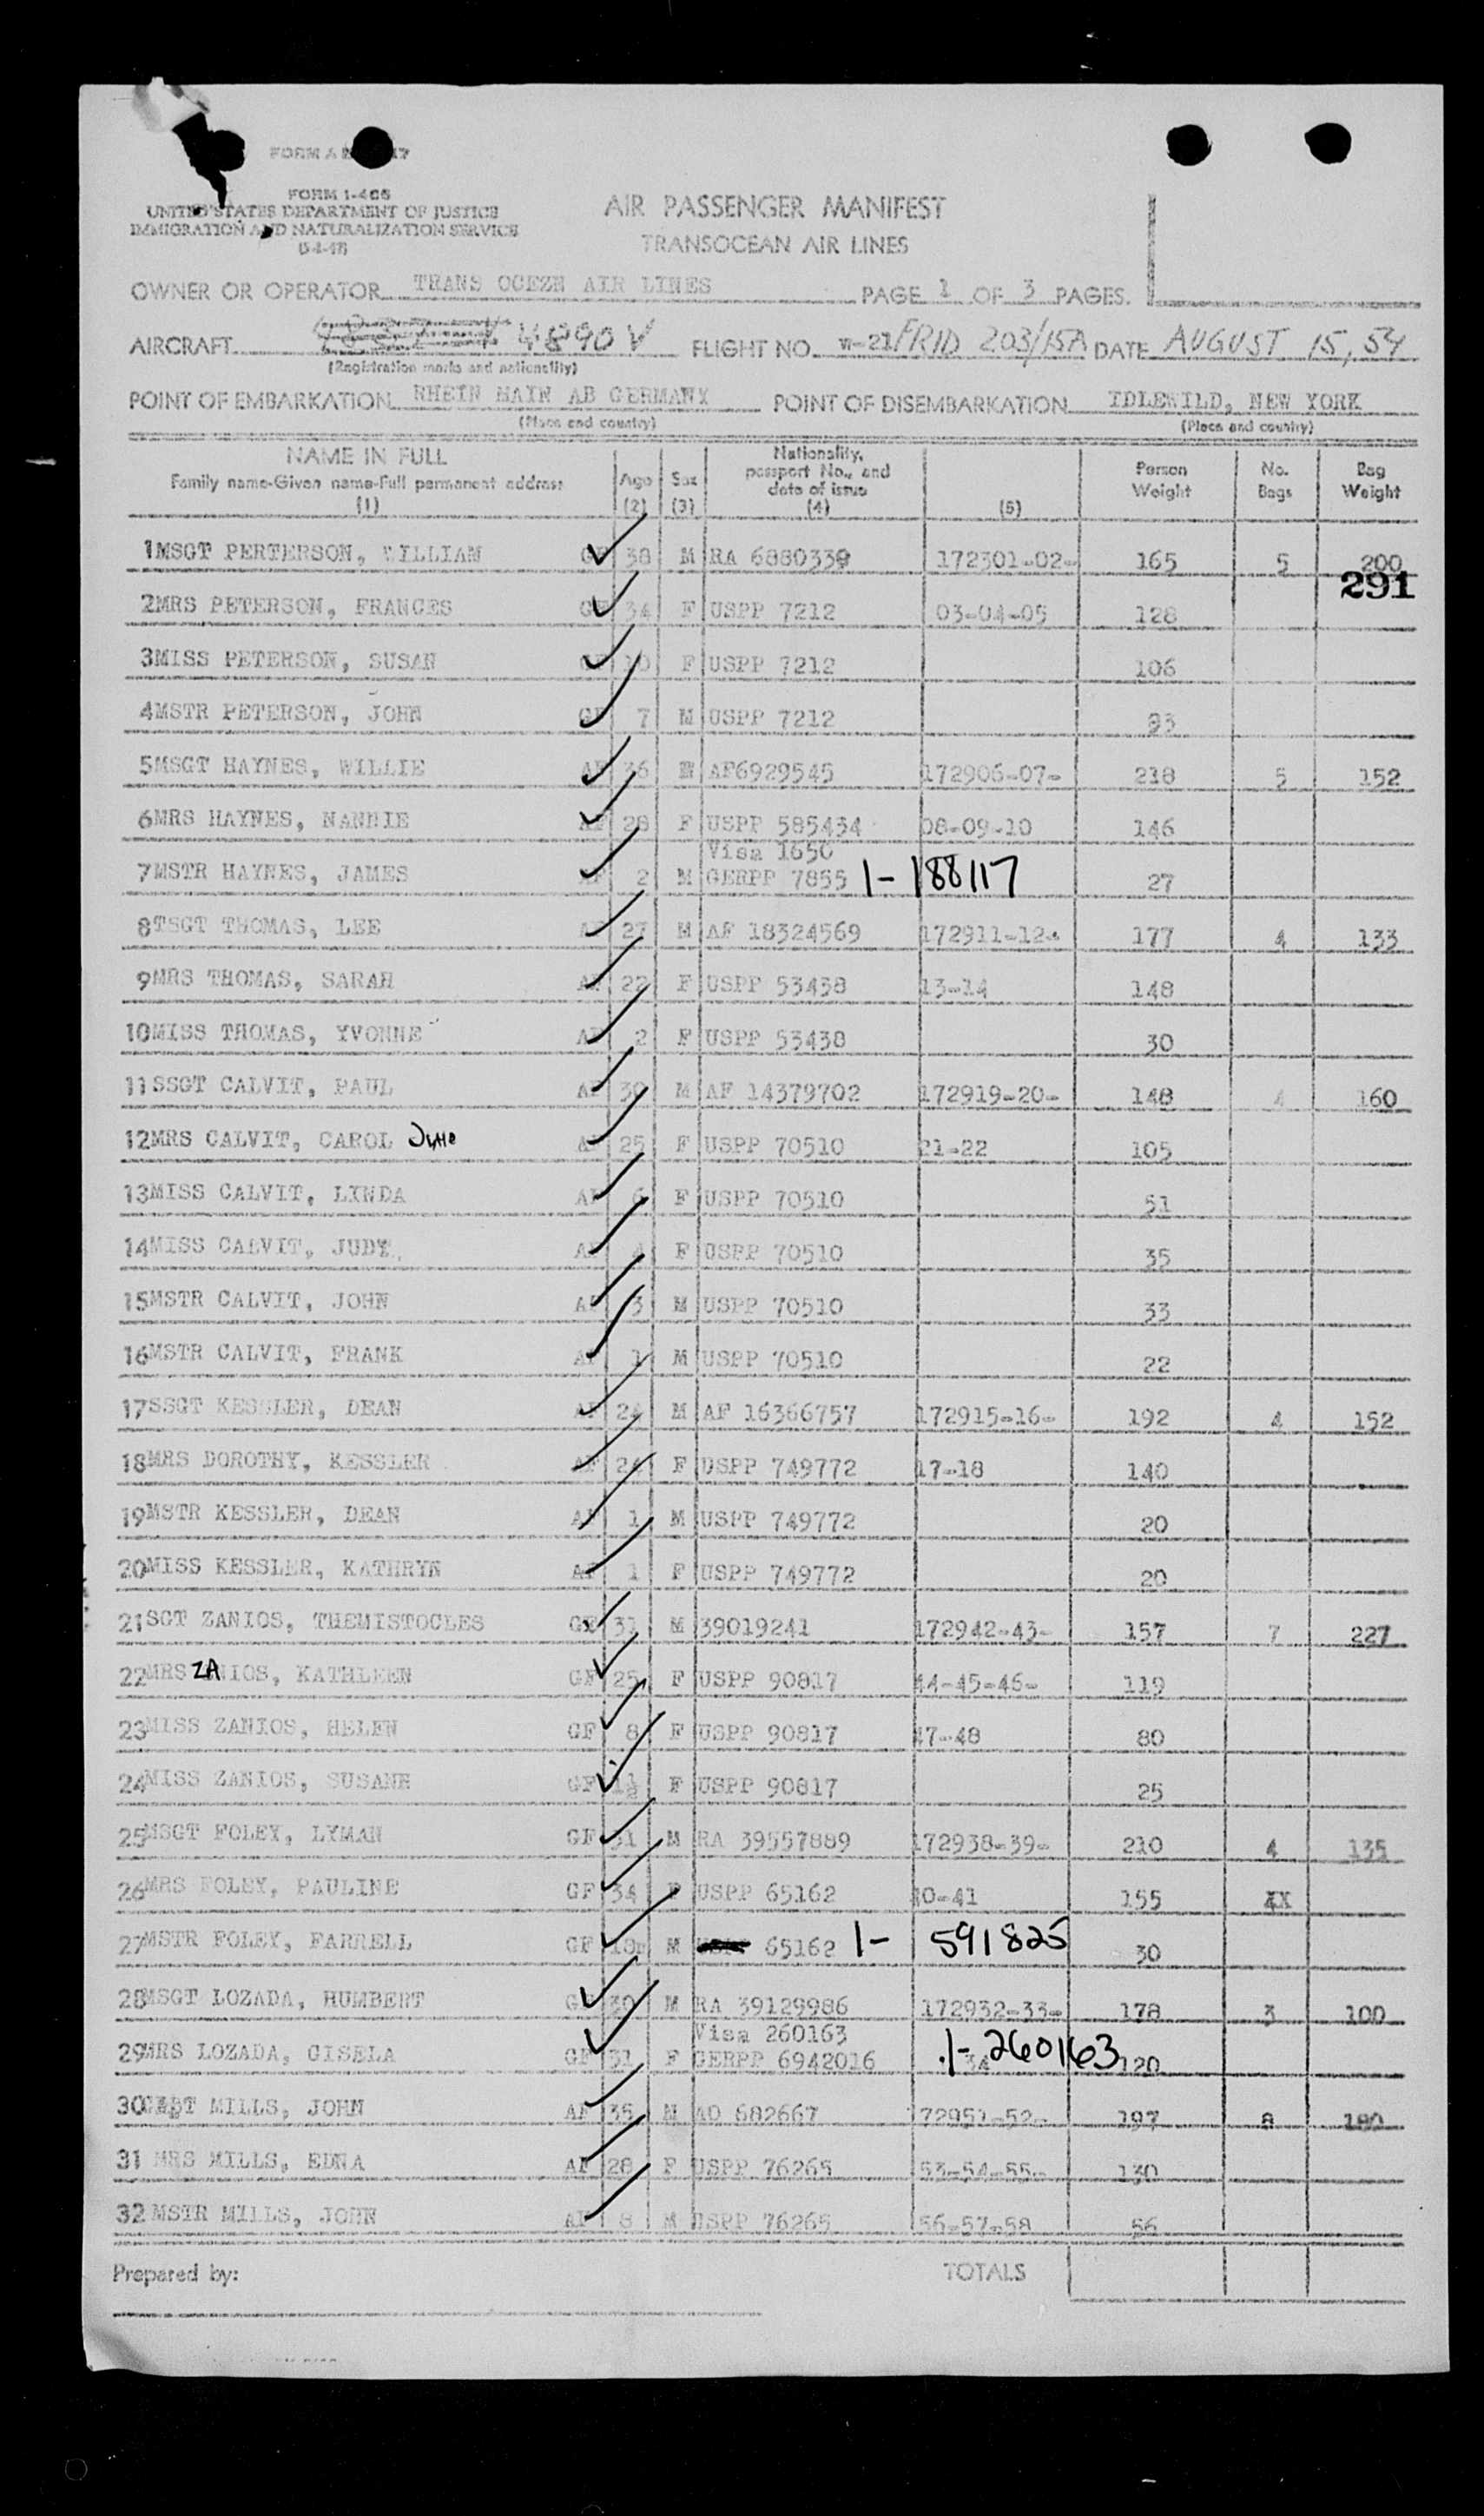 FORM I-466
UNITED STATES DEPARTMENT OF JUSTICE
IMMIGRATION AND NATURALIZATION SERVICE
AIR PASSENGER MANIFEST
TRANSOCEAN AIR LINES
OWNER OR OPERATOR TRANS OCEZN AIR LINES PAGE 1 OF 3 PAGES.
AIRCRAFT 4890V FLIGHT NO. FRID 203/15A DATE AUGUST 15, 54
(Registration marks and nationality)
POINT OF EMBARKATION RHEIN MAIN AB GERMANY POINT OF DISEMBARKATION IDLEWILD, NEW YORK
(Place and country) (Place and country)
NAME IN FULL Family name-Given name-Full permanent address (1) Age (2) Sex (3) Nationality, passport No., and date of issue (4) (5) Person Weight No. Bags Bag Weight
1 MSGT PERTERSON, WILLIAM GF 38 M RA 6880339 172301-02- 165 5 200
291
2 MRS PETERSON, FRANCES GF 34 F USPP 7212 03-04-05 128
3 MISS PETERSON, SUSAN GF 10 F USPP 7212 106
4 MSTR PETERSON, JOHN GF 7 M USPP 7212 93
5 MSGT HAYNES, WILLIE AF 36 M AF6929545 172906-07- 218 5 152
6 MRS HAYNES, NANNIE AF 28 F USPP 585434 08-09-10 146
Visa 1650
7 MSTR HAYNES, JAMES AF 2 M GERPP 7855 1-188117 27
8 TSGT THOMAS, LEE AF 27 M AF 18324569 172911-12- 177 4 133
9 MRS THOMAS, SARAH AF 22 F USPP 53438 13-14 148
10 MISS THOMAS, YVONNE AF 2 F USPP 53438 30
11 SSGT CALVIT, PAUL AF 30 M AF 14379702 172919-20- 148 4 160
12 MRS CALVIT, CAROL AF 25 F USPP 70510 21-22 105
13 MISS CALVIT, LINDA AF 6 F USPP 70510 51
14 MISS CALVIT, JUDY AF 4 F USPP 70510 35
15 MSTR CALVIT, JOHN AF 3 M USPP 70510 33
16 MSTR CALVIT, FRANK AF 1 M USPP 70510 22
17 SSGT KESSLER, DEAN AF 24 M AF 16366757 172915-16- 192 4 152
18 MRS DOROTHY, KESSLER AF 24 F USPP 749772 17-18 140
19 MSTR KESSLER, DEAN AF 1 M USPP 749772 20
20 MISS KESSLER, KATHRYN AF 1 F USPP 749772 20
21 SGT ZANIOS, THEMISTOCLES GF 31 M 39019241 172942-43- 157 7 227
22 MRS ZANIOS, KATHLEEN GF 25 F USPP 90817 44-45-46- 119
23 MISS ZANIOS, HELEN GF 8 F USPP 90817 47-48 80
24 MISS ZANIOS, SUSANE GF 1½ F USPP 90817 25
25 MSGT FOLEY, LYMAN GF 31 M RA 39557889 172938-39- 210 4 135
26 MRS FOLEY, PAULINE GF 34 F USPP 65162 40-41 155 XX
27 MSTR FOLEY, FARRELL GF M 65162 1-591825 30
28 MSGT LOZADA, HUMBERT GF 30 M RA 39129986 172932-33- 178 3 100
Visa 260163
29 MRS LOZADA, GISELA GF 31 F GERPP 6942016 34 1-260163 120
30 MILLS, JOHN AF 35 M AO 682667 172951-52- 197 8 180
31 MRS MILLS, EDNA AF 28 F USPP 76265 53-54-55- 130
32 MSTR MILLS, JOHN AF 8 M USPP 76265 56-57-58 56
Prepared by: TOTALS